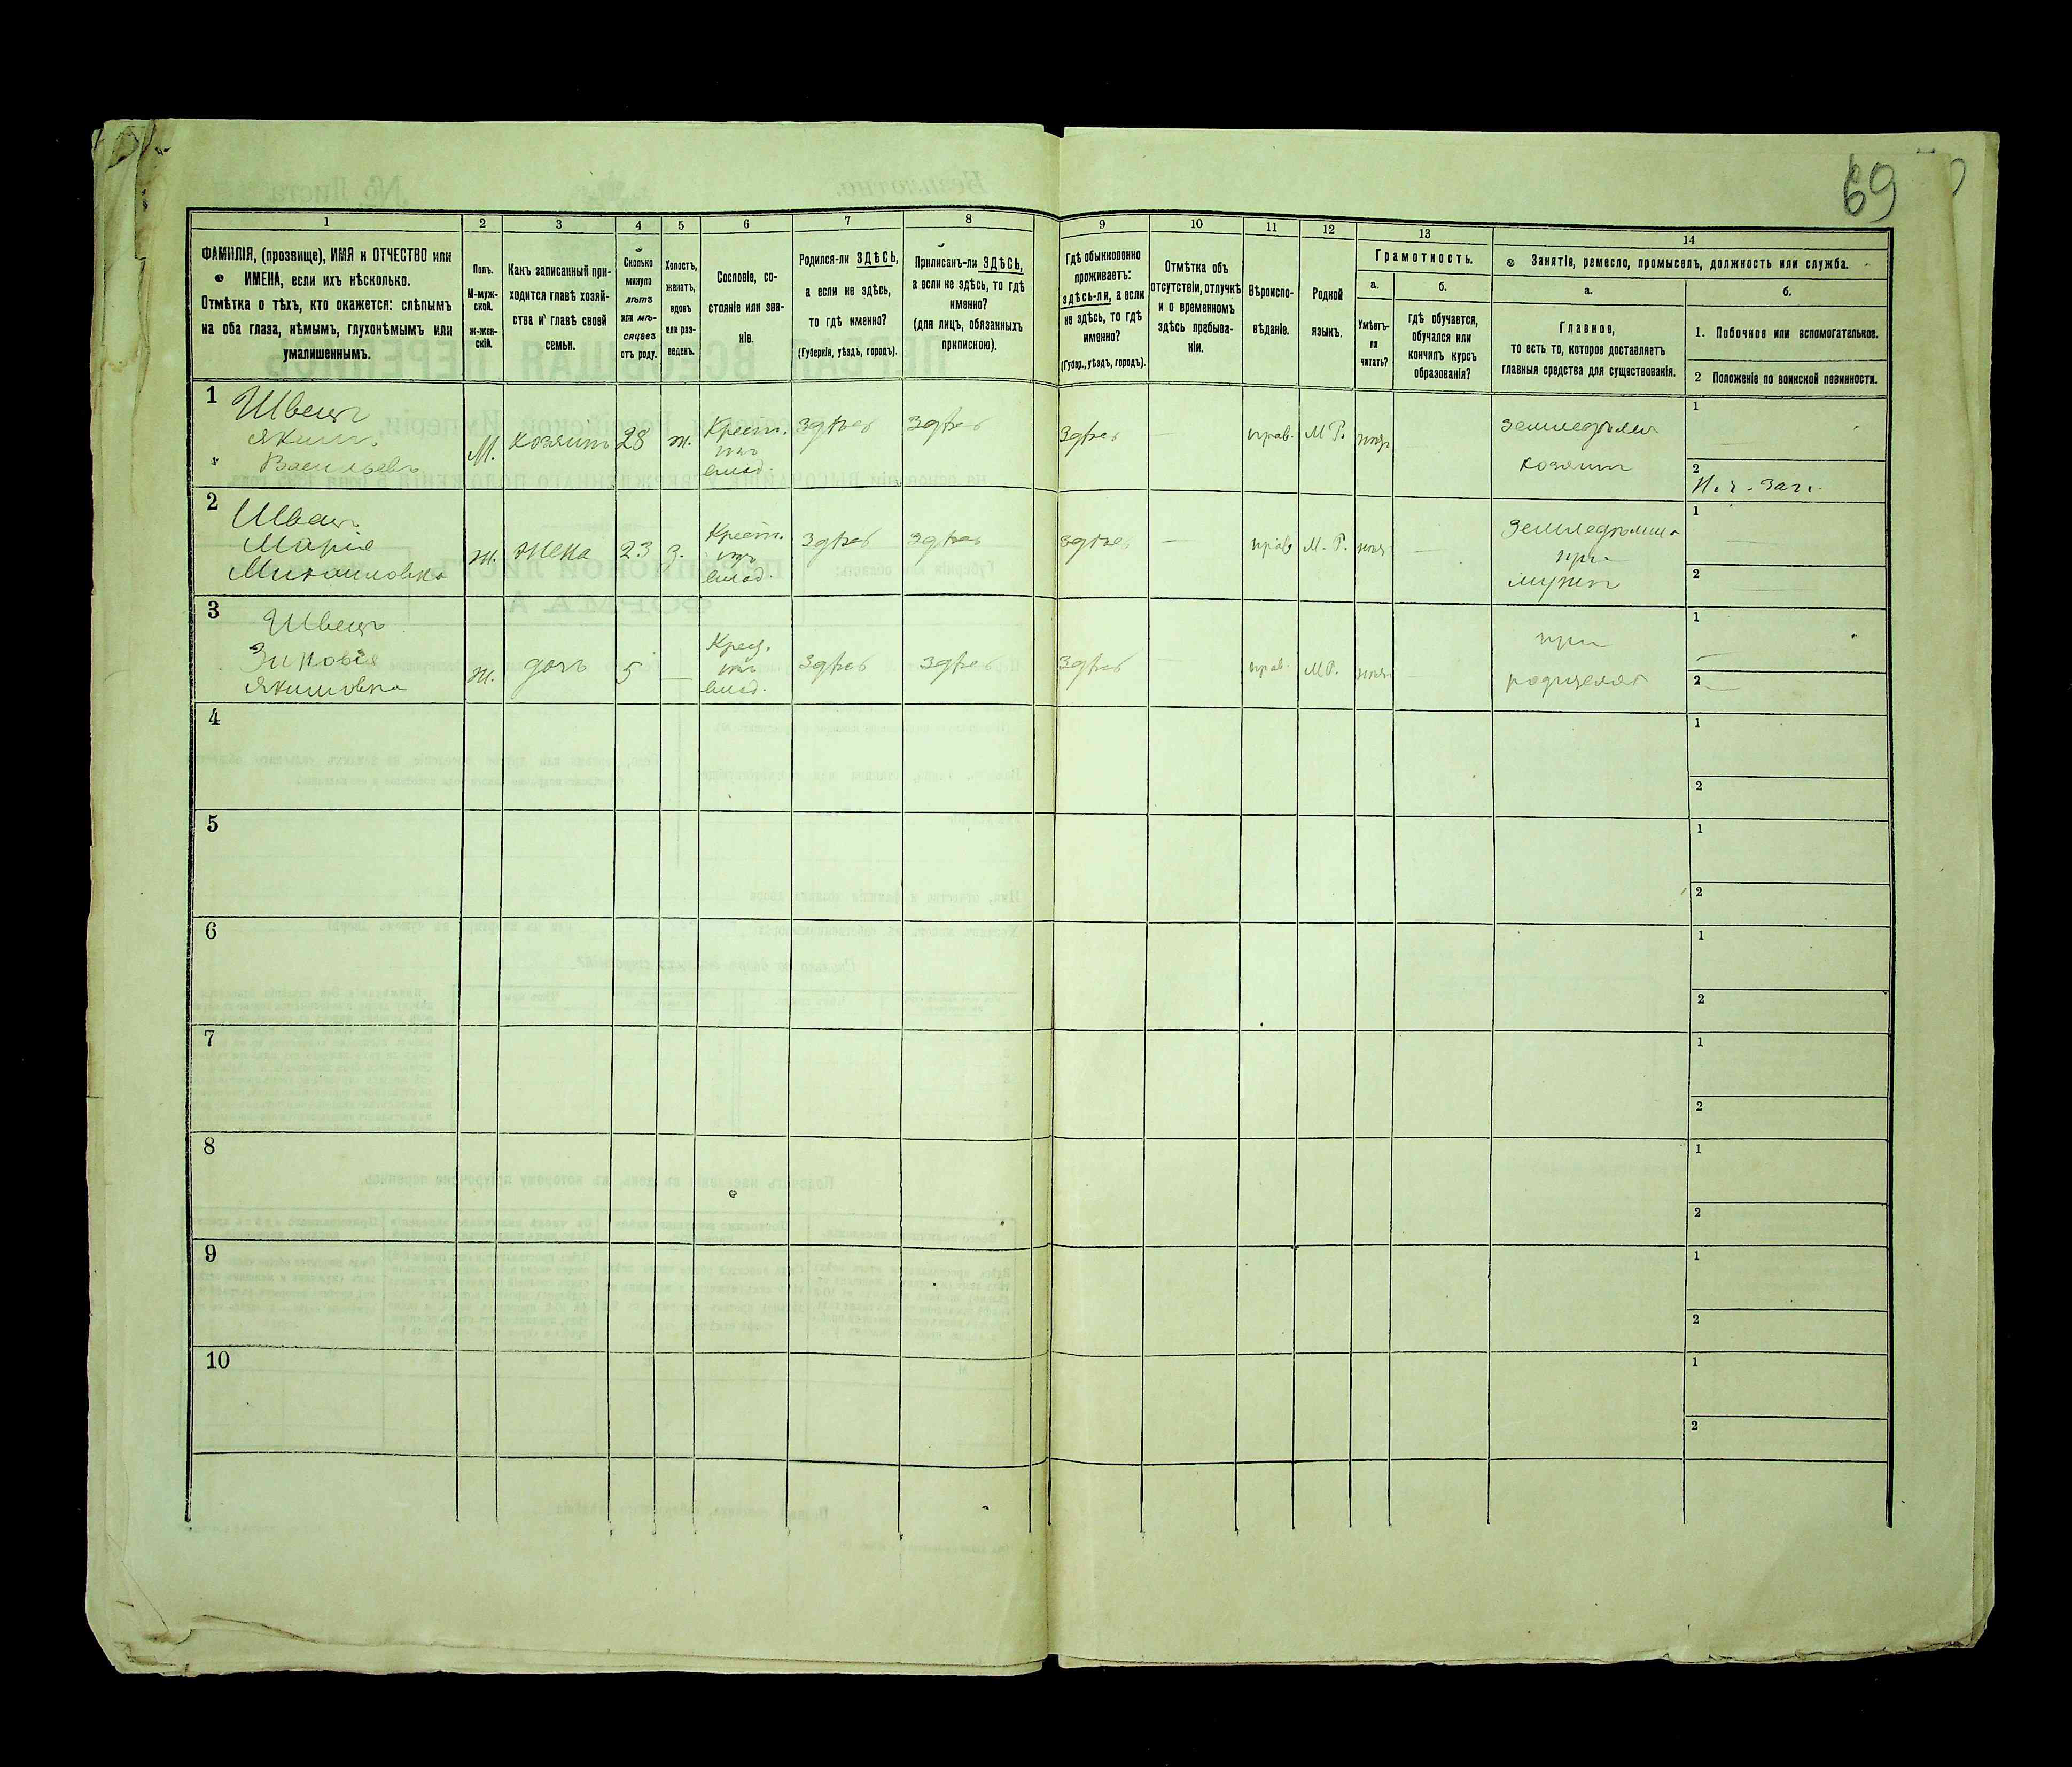 69
1
2
3
4
5
6
7
8
9
10
11
12
13
14
ФАМИЛІЯ, (прозвище), ИМЯ и ОТЧЕСТВО или
ИМЕНА, если ихъ нѣсколько.
Отмѣтка о тѣхъ, кто окажется: слѣпымъ
на оба глаза, нѣмымъ, глухонѣмымъ или
умалишеннымъ.
Полъ.
М-муж-
ской.
Ж-жен-
скій.
Какъ записанный при-
ходится главѣ хозяй-
ства и главѣ своей
семьи.
Сколько
минуло
лѣтъ
или мѣ-
сяцевъ
отъ роду.
Холостъ,
женатъ,
вдовъ
или раз-
веденъ.
Сословіе, со-
стояніе или зва-
ніе.
Родился-ли ЗДѢСЬ,
а если не здѣсь,
то гдѣ именно?
(Губернія, уѣздъ, городъ).
Приписанъ-ли ЗДѢСЬ,
а если не здѣсь, то гдѣ
именно?
(для лицъ, обязанныхъ
припискою).
Гдѣ обыкновенно
проживаетъ:
здѣсь-ли, а если
не здѣсь, то гдѣ
именно?
(Губер., уѣздъ, городъ).
Отмѣтка объ
отсутствіи, отлучкѣ
и о временномъ
здѣсь пребыва-
ніи.
Вѣроиспо-
вѣданіе.
Родной
языкъ.
Грамотность.
а.
Умѣетъ-
ли
читать?
б.
гдѣ обучается,
обучался или
кончилъ курсъ
образованія?
Занятія, ремесло, промыселъ, должность или служба.
а.
Главное,
то есть то, которое доставляетъ
главныя средства для существованія.
б.
1. Побочное или вспомогательное.
2 Положеніе по воинской повинности.
1
Швецъ
Якимъ
Васильевъ
М.
хозяинъ
28
ж.
Крест.
изъ
влад.
здѣсь
здѣсь
здѣсь
—
прав.
М.Р.
земледѣлія
хозяинъ
1 —
2
2
Швецъ
Марія
Михаиловна
ж.
жена
23
з.
Крест.
изъ
влад.
здѣсь
здѣсь
здѣсь
—
прав
М. Р.
—
при
мужѣ
1 —
2 —
3
Швецъ
Зиновія
Якимовна
ж.
дочь
5
—
Крест.
изъ
влад.
здѣсь
здѣсь
здѣсь
—
прав.
МР.
—
при
1 —
2 —
4
1
2
5
1
2
6
1
2
7
1
2
8
1
2
9
1
2
10
1
2